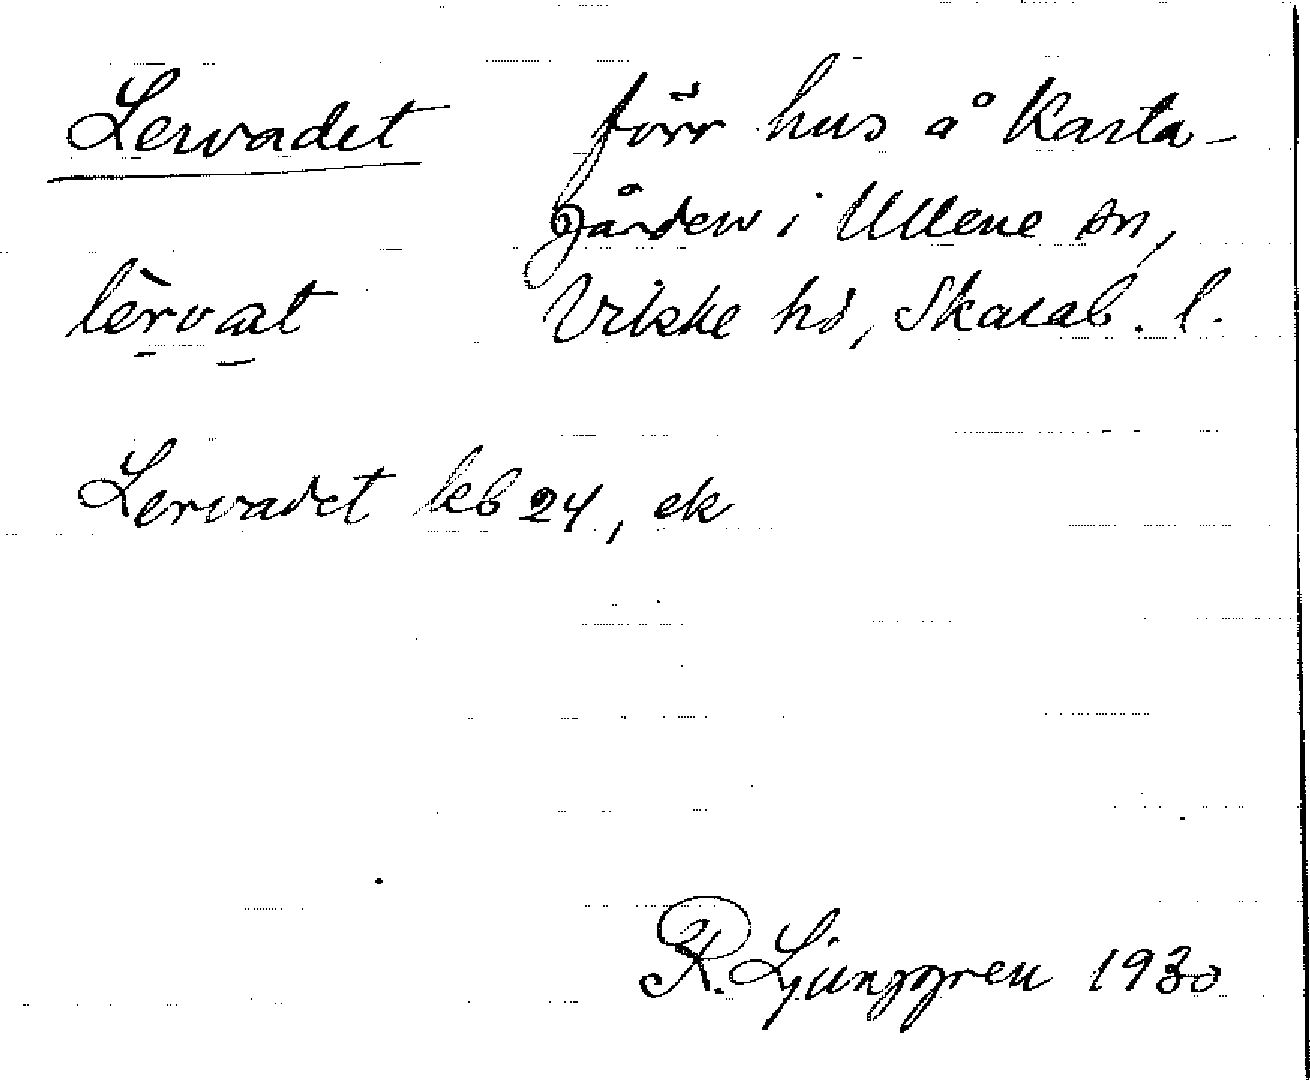 Lervadet förr hus å Karsta-
gården i Ullene sn,
lèrvat Vilske hd, Skarab. l.
Lervadet kb 24, ek
R. Ljunggren 1930